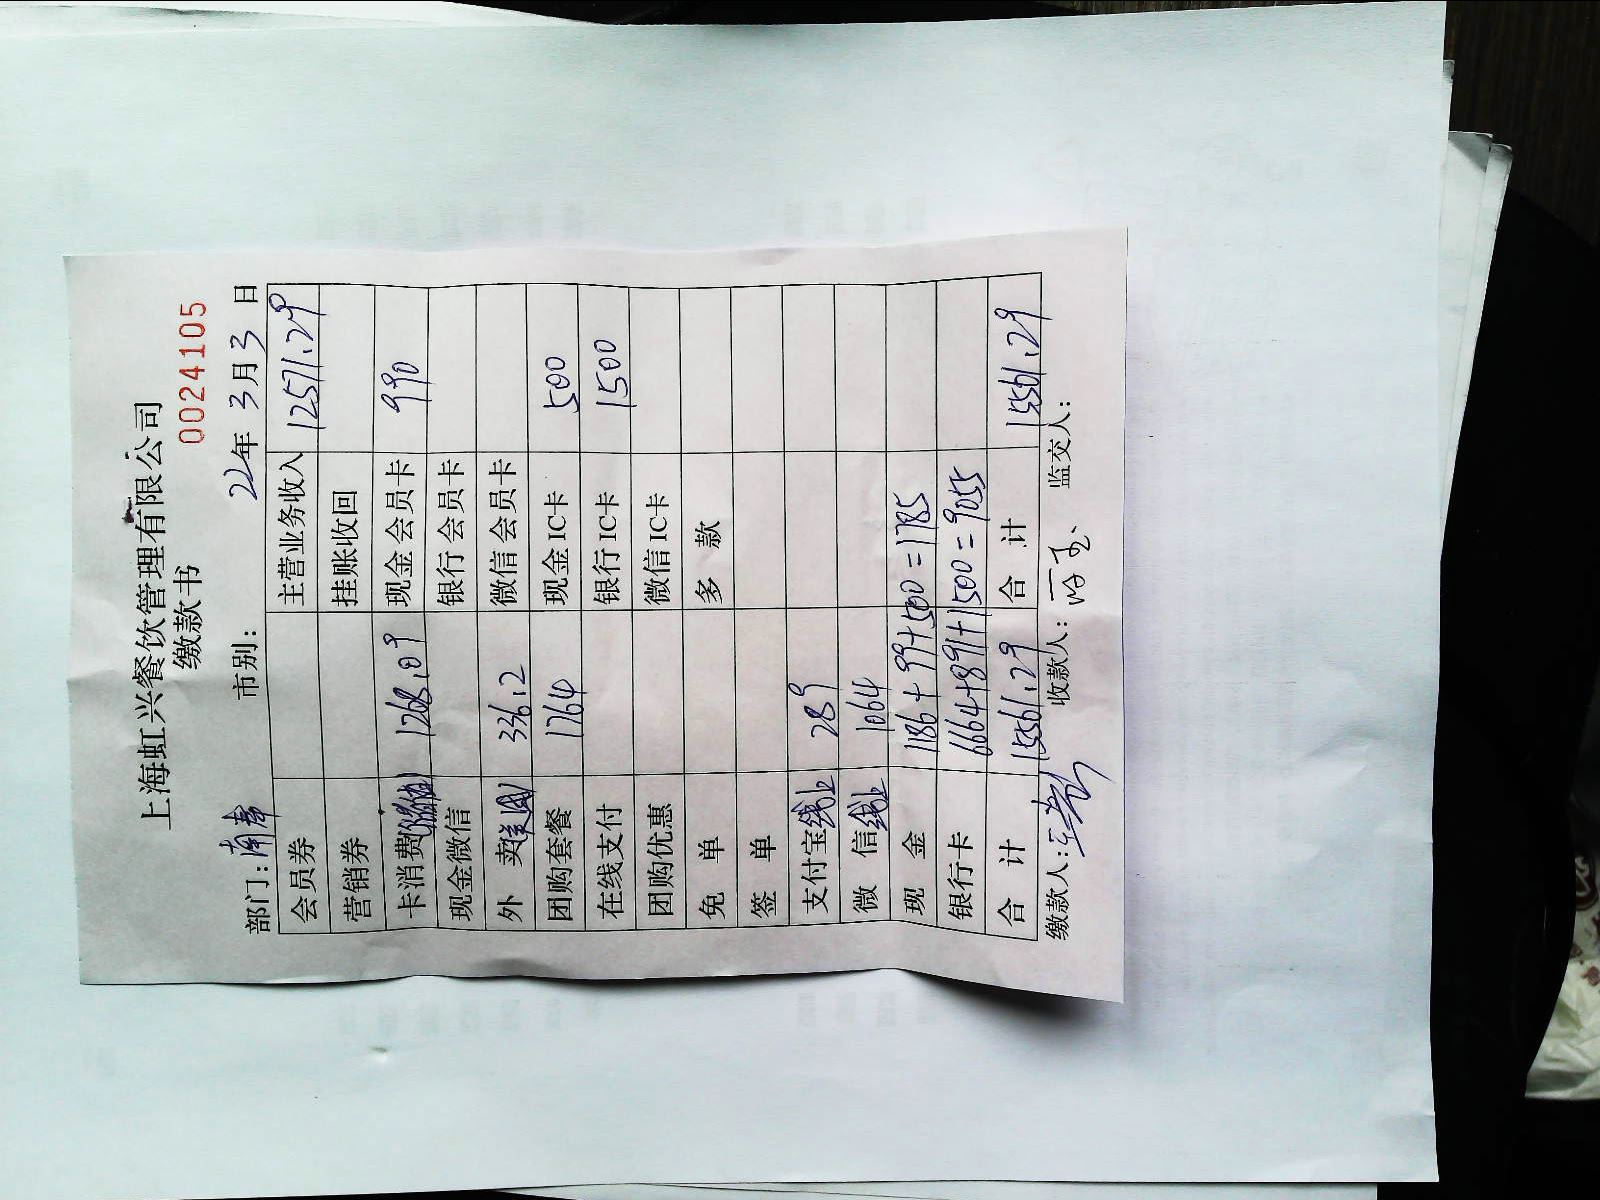 上海虹兴餐饮管理有限公司
缴款书 0024105
部门: 市别: 22年3月3日
会员券 主营业务收入 12571.29
营销券 挂账收回
卡消费 1268.09 现金会员卡 990
现金微信 银行会员卡
外 卖 336.2 微信会员卡
团购套餐 1764 现金IC卡 500
在线支付 银行IC卡 1500
团购优惠 微信IC卡
免 单 多 款
签 单
支付宝线上 289
微 信线上 1064
现 金 1186+99+500=1785
银行卡 6664+891+1500=9055
合 计 15561.29 合 计 15561.29
缴款人: 收款人: 监交人: